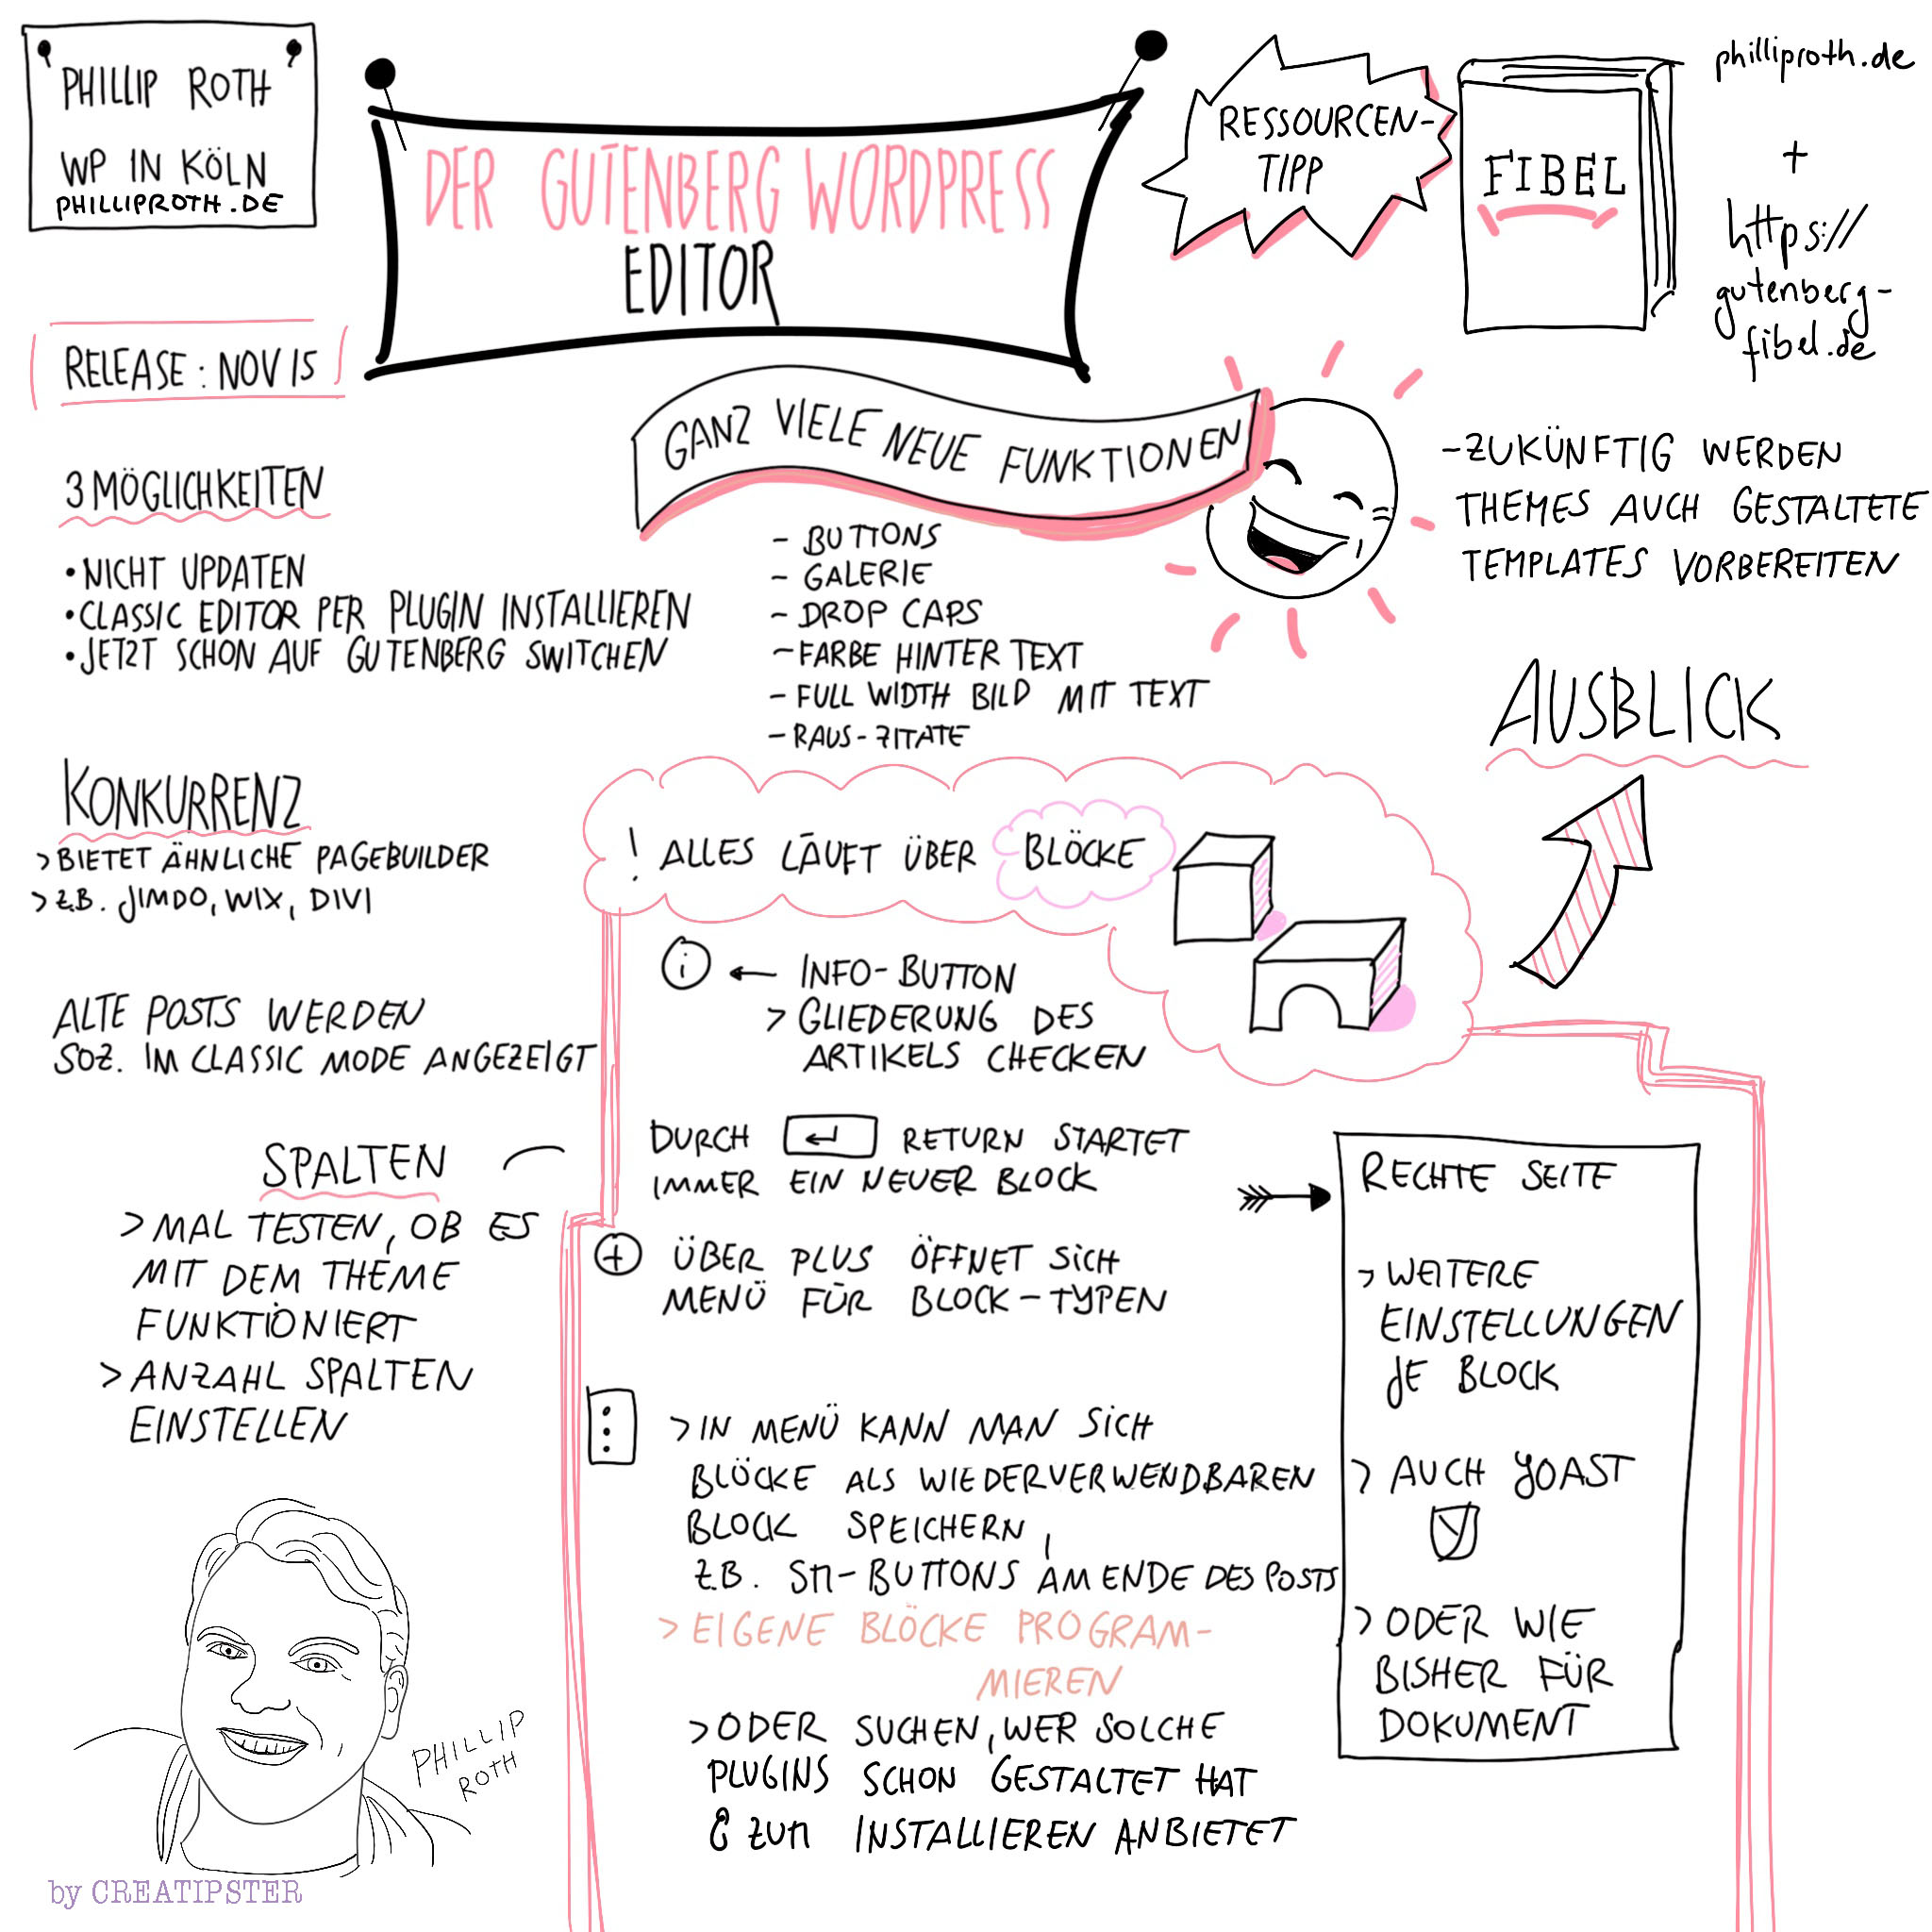 PHILLIP ROTH
WP IN KÖLN
PHILLIPROTH.DE
DER GUTENBERG WORDPRESS
EDITOR
RESSOURCEN-
TIPP
FIBEL
philliproth.de
+
https://
gutenberg-
fibel.de
RELEASE: NOV 15
3 MÖGLICHKEITEN
• NICHT UPDATEN
• CLASSIC EDITOR PER PLUGIN INSTALLIEREN
• JETZT SCHON AUF GUTENBERG SWITCHEN
GANZ VIELE NEUE FUNKTIONEN
- BUTTONS
- GALERIE
- DROP CAPS
- FARBE HINTER TEXT
- FULL WIDTH BILD MIT TEXT
- RAUS-ZITATE
- ZUKÜNFTIG WERDEN
THEMES AUCH GESTALTETE
TEMPLATES VORBEREITEN
AUSBLICK
KONKURRENZ
> BIETET ÄHNLICHE PAGEBUILDER
> Z.B. JIMDO, WIX, DIVI
ALTE POSTS WERDEN
SOZ. IM CLASSIC MODE ANGEZEIGT
SPALTEN
> MAL TESTEN, OB ES
MIT DEM THEME
FUNKTIONIERT
> ANZAHL SPALTEN
EINSTELLEN
! ALLES LÄUFT ÜBER BLÖCKE
i ← INFO-BUTTON
> GLIEDERUNG DES
ARTIKELS CHECKEN
DURCH ↵ RETURN STARTET
IMMER EIN NEUER BLOCK
+ ÜBER PLUS ÖFFNET SICH
MENÜ FÜR BLOCK-TYPEN
> IN MENÜ KANN MAN SICH
BLÖCKE ALS WIEDERVERWENDBAREN
BLOCK SPEICHERN,
Z.B. SM-BUTTONS AM ENDE DES POSTS
> EIGENE BLÖCKE PROGRAM-
MIEREN
> ODER SUCHEN, WER SOLCHE
PLUGINS SCHON GESTALTET HAT
& ZUM INSTALLIEREN ANBIETET
RECHTE SEITE
> WEITERE
EINSTELLUNGEN
JE BLOCK
> AUCH YOAST
Y
> ODER WIE
BISHER FÜR
DOKUMENT
PHILLIP
ROTH
by CREATIPSTER